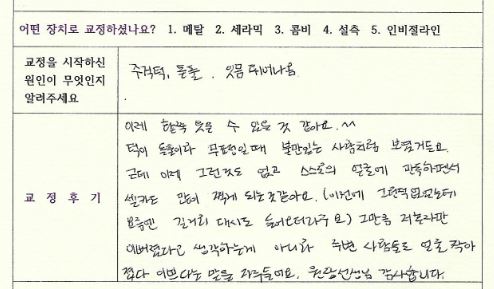 어떤 장치로 교정하셨나요? 1. 메탈 2. 세라믹 3. 콤비 4. 설측 5. 인비절라인
교정을 시작하신
원인이 무엇인지
알려주세요
주걱턱, 돌출, 잇몸 튀어나옴
교 정 후 기
이제 활짝 웃을 수 있을 것 같아요. ^^
턱이 돌출이라 무표정일때 불만있는 사람처럼 보였거든요.
근데 이제 그런것도 없고 스스로의 얼굴에 만족하면서
셀카도 많이 찍게 되는것같아요. (이전에 그런적 없었는데
요즘엔 길거리 대시도 들어오더라구요) 그만큼 저혼자만
예뻐졌다고 생각하는게 아니라 주변 사람들도 얼굴 작아
졌다 이쁘다는 말을 자주들어요. 원장선생님 감사합니다.